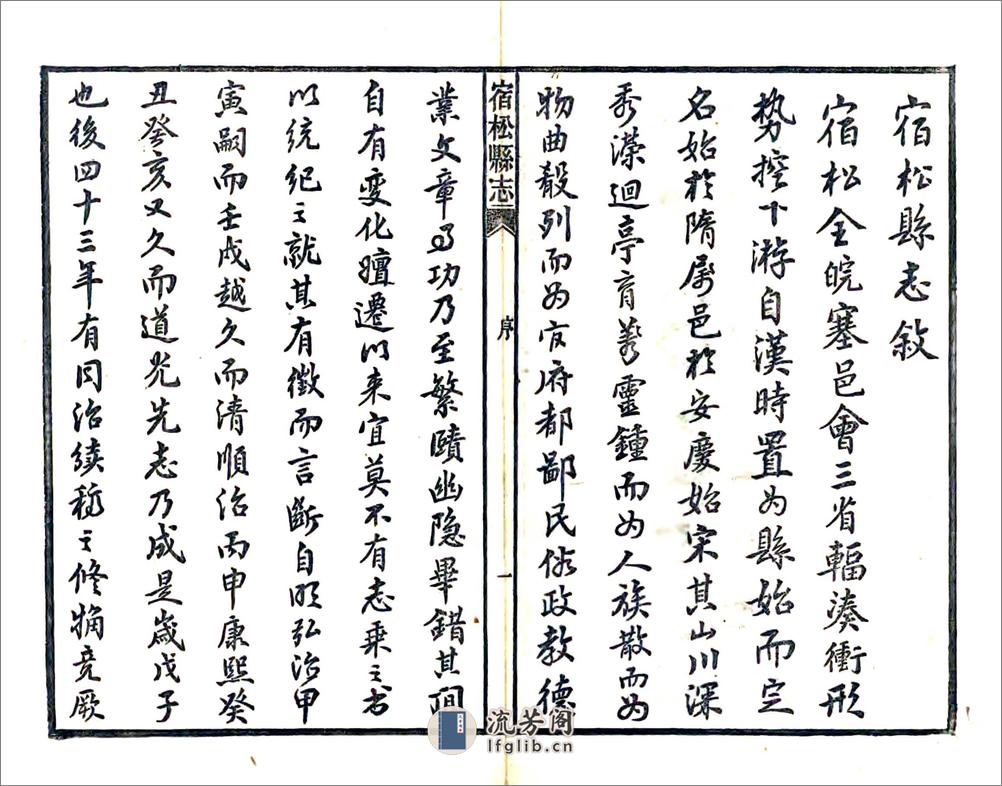 宿松縣志敘
宿松全皖塞邑會三省輻湊衝形
勢控下游自漢時置為縣始而定
名始於隋屬邑於安慶始宋其山川深
秀瀠迴亭育蓋靈鍾而為人族散而為
物曲殽列而為官府都鄙民俗政教德
宿松縣志
序
一
業文章事功乃至繁賾幽隱畢錯其間
自有變化嬗遷以來宜莫不有志乘之書
以統紀之就其有徵而言斷自明弘治甲
寅嗣而壬戌越久而清順治丙申康熙癸
丑癸亥又久而道光先志乃成是歲戊子
也後四十三年有同治續稿之修稿竟厥
流芳阁
lfglib.cn